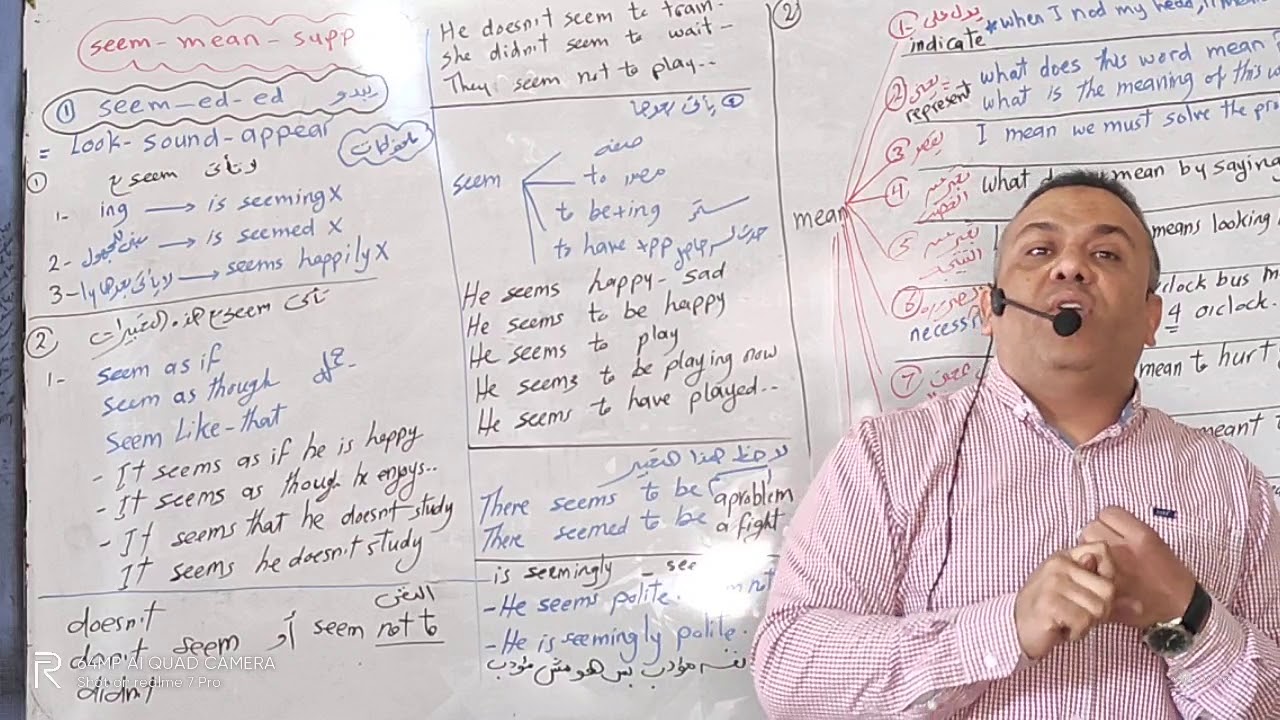 seem - mean - supp
① seem - ed - ed يبدو
= Look - sound - appear
ملاحظات
① لا تأتى seem ع
1- ing → is seeming X
2- → is seemed X
3- لا يأتى بعدها → seems happily X
② تأتى seem مع هذه التعبيرات
1- seem as if
seem as though
seem Like - that
- It seems as if he is happy
- It seems as though he enjoys..
- It seems that he doesn't study
It seems he doesn't study
النفى
doesn't
don't seem أو seem not to
didn't
He doesn't seem to train.
she didn't seem to wait -
They seem not to play..
يأتى بعدها
seem
صفه
to مصدر
to be + ing مستمر
to have + pp
He seems happy - sad
He seems to be happy
He seems to play
He seems to be playing now
He seems to have played..
لاحظ هذا التعبير
There seems to be a problem
There seemed to be a fight
is seemingly - see
- He seems polite.
- He is seemingly polite.
مؤدب بس هو مش مؤدب
②
mean
1- يدل على
indicate * when I nod my head, it mean
② يعنى
represent
what does this word mean ?
what is the meaning of this w
③ يقصد I mean we must solve the pro
④ what mean by saying
5 means looking
⑥ o'clock bus m
necess 4 o'clock.
⑦ mean to hurt
meant
64MP AI QUAD CAMERA
Shot on realme 7 Pro